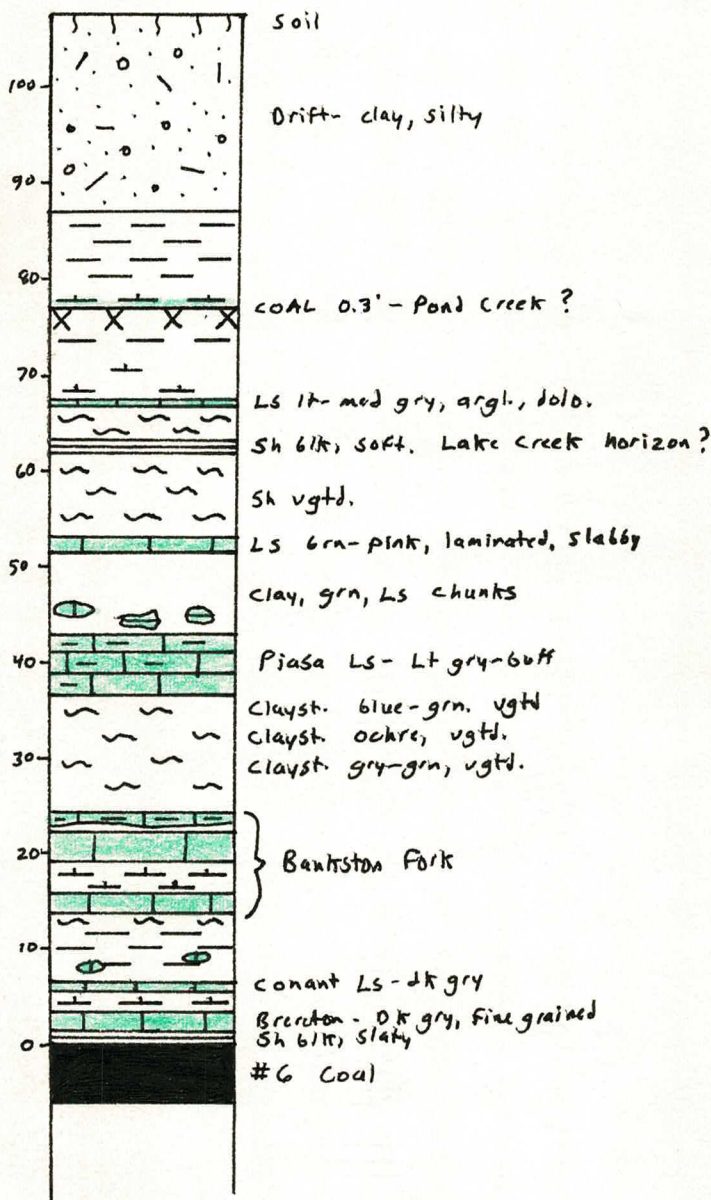 Soil
100
Drift- clay, silty
90
80
COAL 0.3' - Pond Creek ?
70
Ls lt- med gry, argl., dolo.
Sh blk, soft. Lake Creek horizon?
60
Sh vgtd.
Ls Grn-pink, laminated, slabby
50
Clay, grn, Ls chunks
40
Piasa Ls- Lt gry-buff
Clayst. blue-grn. vgtd
Clayst. ochre, vgtd.
30
Clayst. gry-grn, vgtd.
20
Bankston Fork
10
Conant Ls-dk gry
Brereton - Dk gry, fine grained
Sh blk, slaty
0
#6 Coal